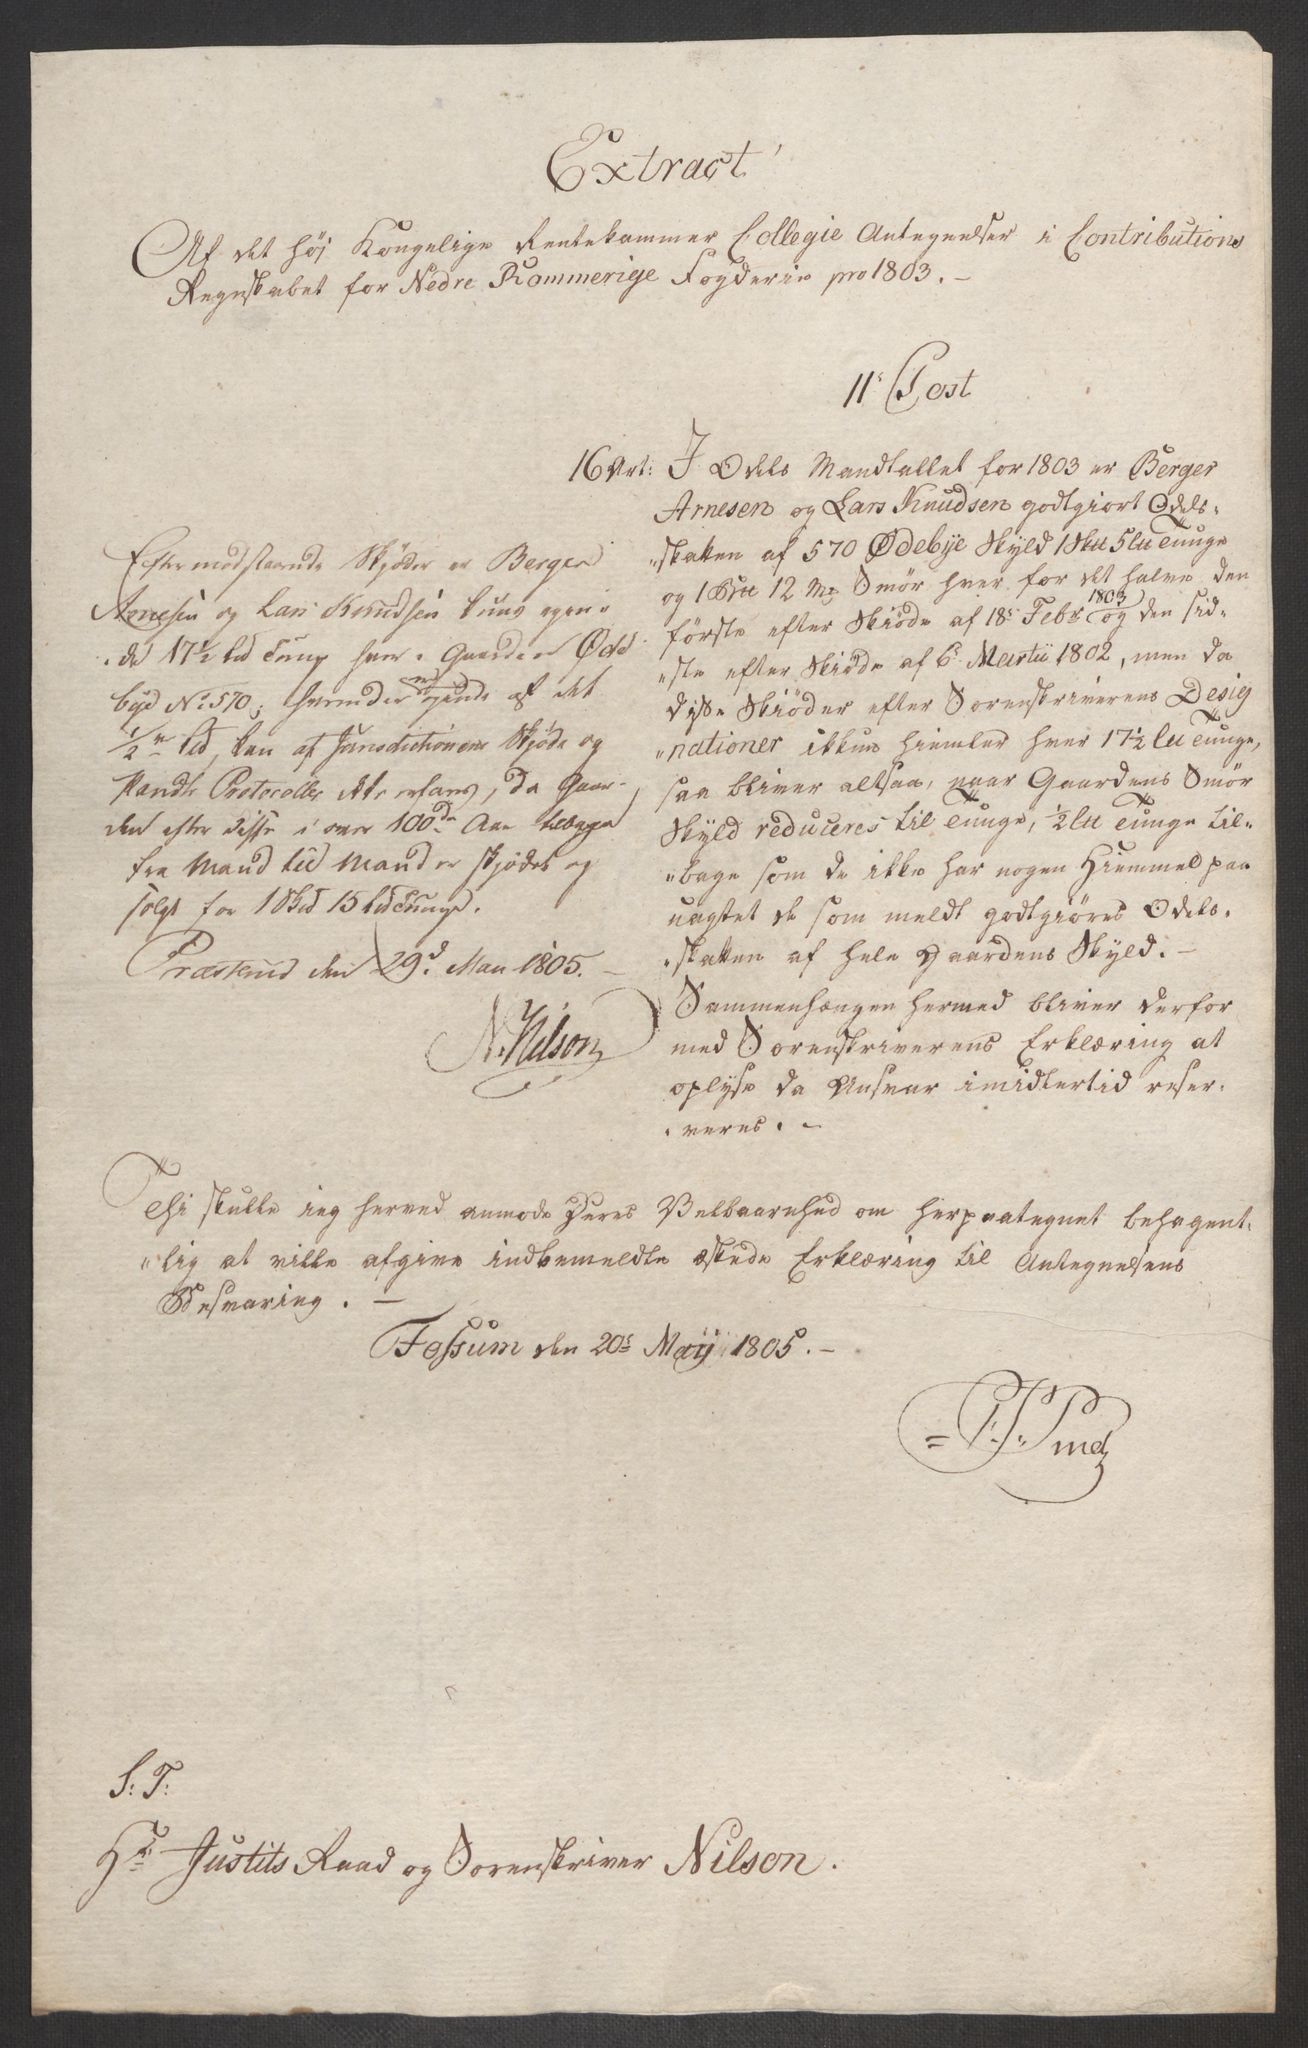 Extract
Af det høj Kongelige Rentekammer Collegie Antegnelser i Contributions
Regnskabet for Nedre Rommerige Fogderie pro 1803. -
11s Post
16 Art: I Odels Mandtallet for 1803 er Berger
Arnesen og Lars Knudsen godtgiort Odels-
"skatten af 570 Ødebÿe Skÿld 1 Sku 5 lu Tunge
og 1 12 Mg Smör hver for det halve den
förste efter Skiöde af 18s Febr 1803 og den sid-
"ste efter Skiöde af 6 Martii 1802, men da
disse Skiöder efter Sorenskriverens Desig
"nationer ikkun hiemler hver 17½ lu Tunge,
saa bliver altsaa, naar Gaardens Smör
Skÿld reduceres til Tunge, ½ lu Tunge til-
"bage som de ikke har nogen Hiemmel paa
uagtet de som meldt godtgiöres Odels-
"skatten af hele Gaardens Skÿld. -
Sammenhængen hermed bliver derfor
med Sorenskriverens Erklæring at
oplÿse da Ansvar imidlertid reser-
"veres. -
Efter modstaaende Skjøder er Berger
Arnesen og Lars Knudsen kuns egen-
"de 17½ Lud Tunge hver i Gaarden Øde
bye No 570; hvorudover gende af det
½ Lud, kan af Jurisdictionens Skjøde og
Pandte Protocoller ikke erfares, da Gaar-
den efter disse i over 100de Aar tilbage
fra Mand til Mand er skjødet og
solgt for 1 Skud 15 Lud Tunge.
Præsterud den 29d Mai 1805. -
N. Nilson
Thi skulle ieg herved anmode Deres Velbaarenhed om herpaategnet behagent-
"lig at ville afgive indbemeldte æskede Erklæring til Antegnelsens
Besvaring. -
Fossum den 20s Maÿ 1805. -
S: T:
Hr Justits Raad og Sorenskriver Nilson.